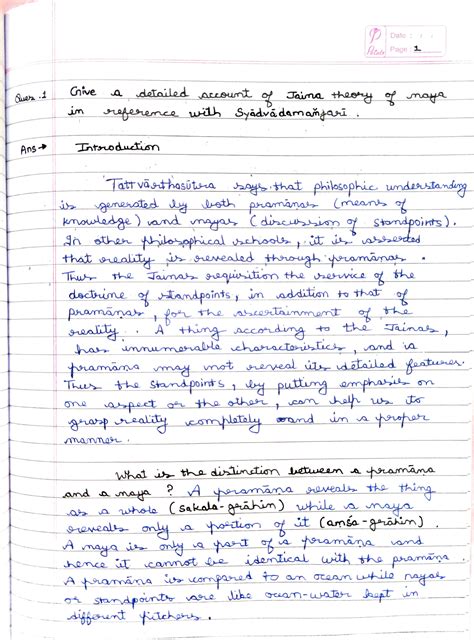 Date :
Page 1
Ques.1 Give a detailed account of Jaina theory of naya
in reference with Syādvādamañjarī.
Ans→ Introduction
Tattvārthasūtra says that philosophic understanding
is generated by both pramānas (means of
knowledge) and nayas (discussion of standpoints).
In other philosophical schools, it is asserted
that reality is revealed through pramānas.
Thus the Jainas requisition the service of the
doctrine of standpoints, in addition to that of
pramānas, for the ascertainment of the
reality. A thing according to the Jainas,
has innumerable characteristics, and a
pramāna may not reveal its detailed features.
Thus the standpoints, by putting emphasis on
one aspect or the other, can help us to
grasp reality completely and in a proper
manner.
What is the distinction between a pramāna
and a naya ? A pramāna reveals the thing
as a whole (sakala-grāhin) while a naya
reveals only a portion of it (amśa-grāhin).
A naya is only a part of a pramāna and
hence it cannot be identical with the pramāna.
A pramāna is compared to an ocean while nayas
or standpoints are like ocean-water kept in
different pitchers.